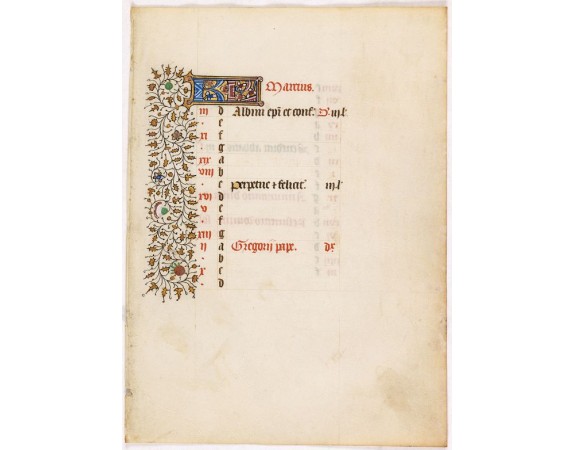 KL Marcius.
iii d Albini epi et conf. D iii l
e
xi f
g
xix a
viii b
c Perpetue ⁊ felicit. iii l
xvi d
v e
f
xiii g
ii a Gregorii pape. dx
b
x c
d